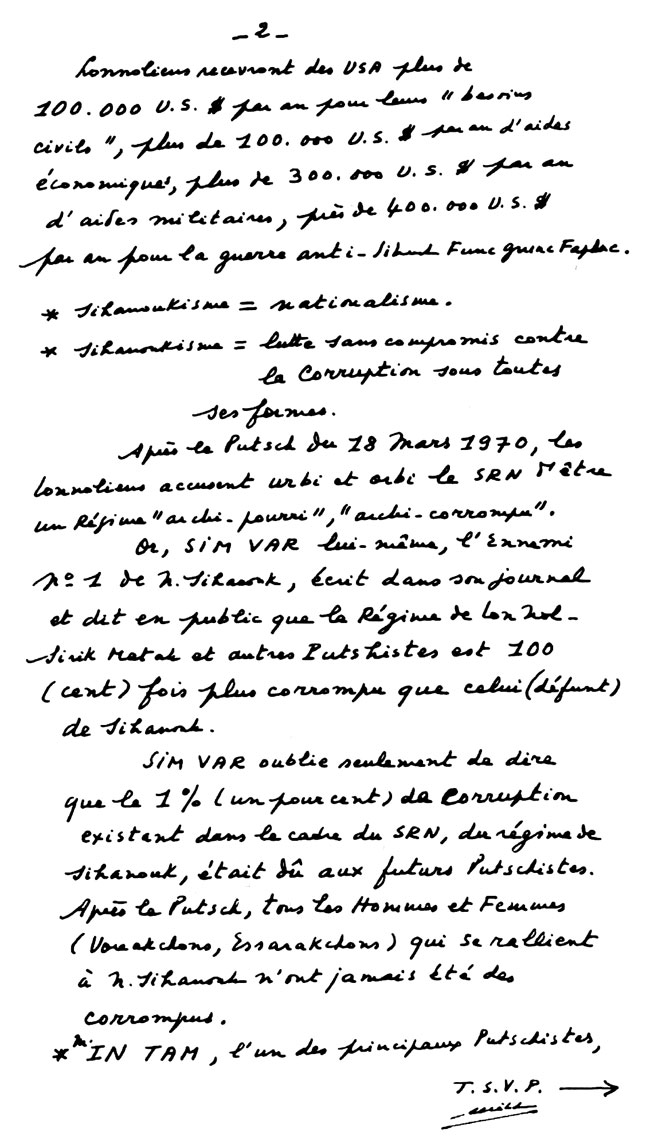 - 2 -
Lonnoliens recevront des USA plus de
100.000 U.S. $ par an pour leurs " besoins
civils ", plus de 100.000 U.S. $ par an d'aides
économiques, plus de 300.000 U.S. $ par an
d'aides militaires, près de 400.000 U.S. $
par an pour la guerre anti-Sihanouk Func
* Sihanoukisme = nationalisme.
* Sihanoukisme = lutte sans compromis contre
la Corruption sous toutes
ses formes.
Après le Putsch du 18 Mars 1970, les
lonnoliens accusent urbi et orbi le SRN d'être
un Régime "archi-pourri", "archi-corrompu".
Or, SIM VAR lui-même, l'Ennemi
nº 1 de N. Sihanouk, écrit dans son journal
et dit en public que le Régime de Lon Nol-
Sirik Matak et autres Putshistes est 100
(cent) fois plus corrompu que celui (défunt)
de Sihanouk.
SIM VAR oublie seulement de dire
que le 1 % (un pour cent) de Corruption
existant dans le cadre du SRN, du régime de
Sihanouk, était dû aux futurs Putschistes.
Après le Putsch, tous les Hommes et Femmes
( Essarakchons) qui se rallient
à N. Sihanouk n'ont jamais été des
corrompus.
* M. IN TAM, l'un des principaux Putschistes,
T.S.V.P. →